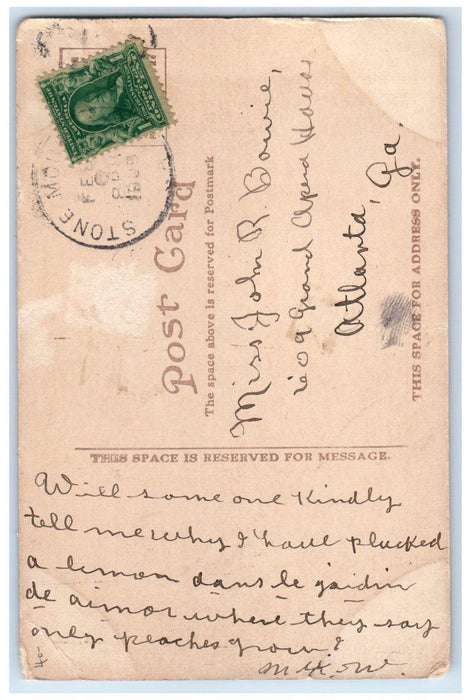 STONE MO
FE
1908
Post Card
The space above is reserved for Postmark
Miss John R Bowie,
209 Grand Opera House
Atlanta, Ga.
THIS SPACE FOR ADDRESS ONLY.
THIS SPACE IS RESERVED FOR MESSAGE.
Will some one kindly
tell me why I have plucked
a lemon dans le jaidin
de aimor where they say
only peaches grow?
40-